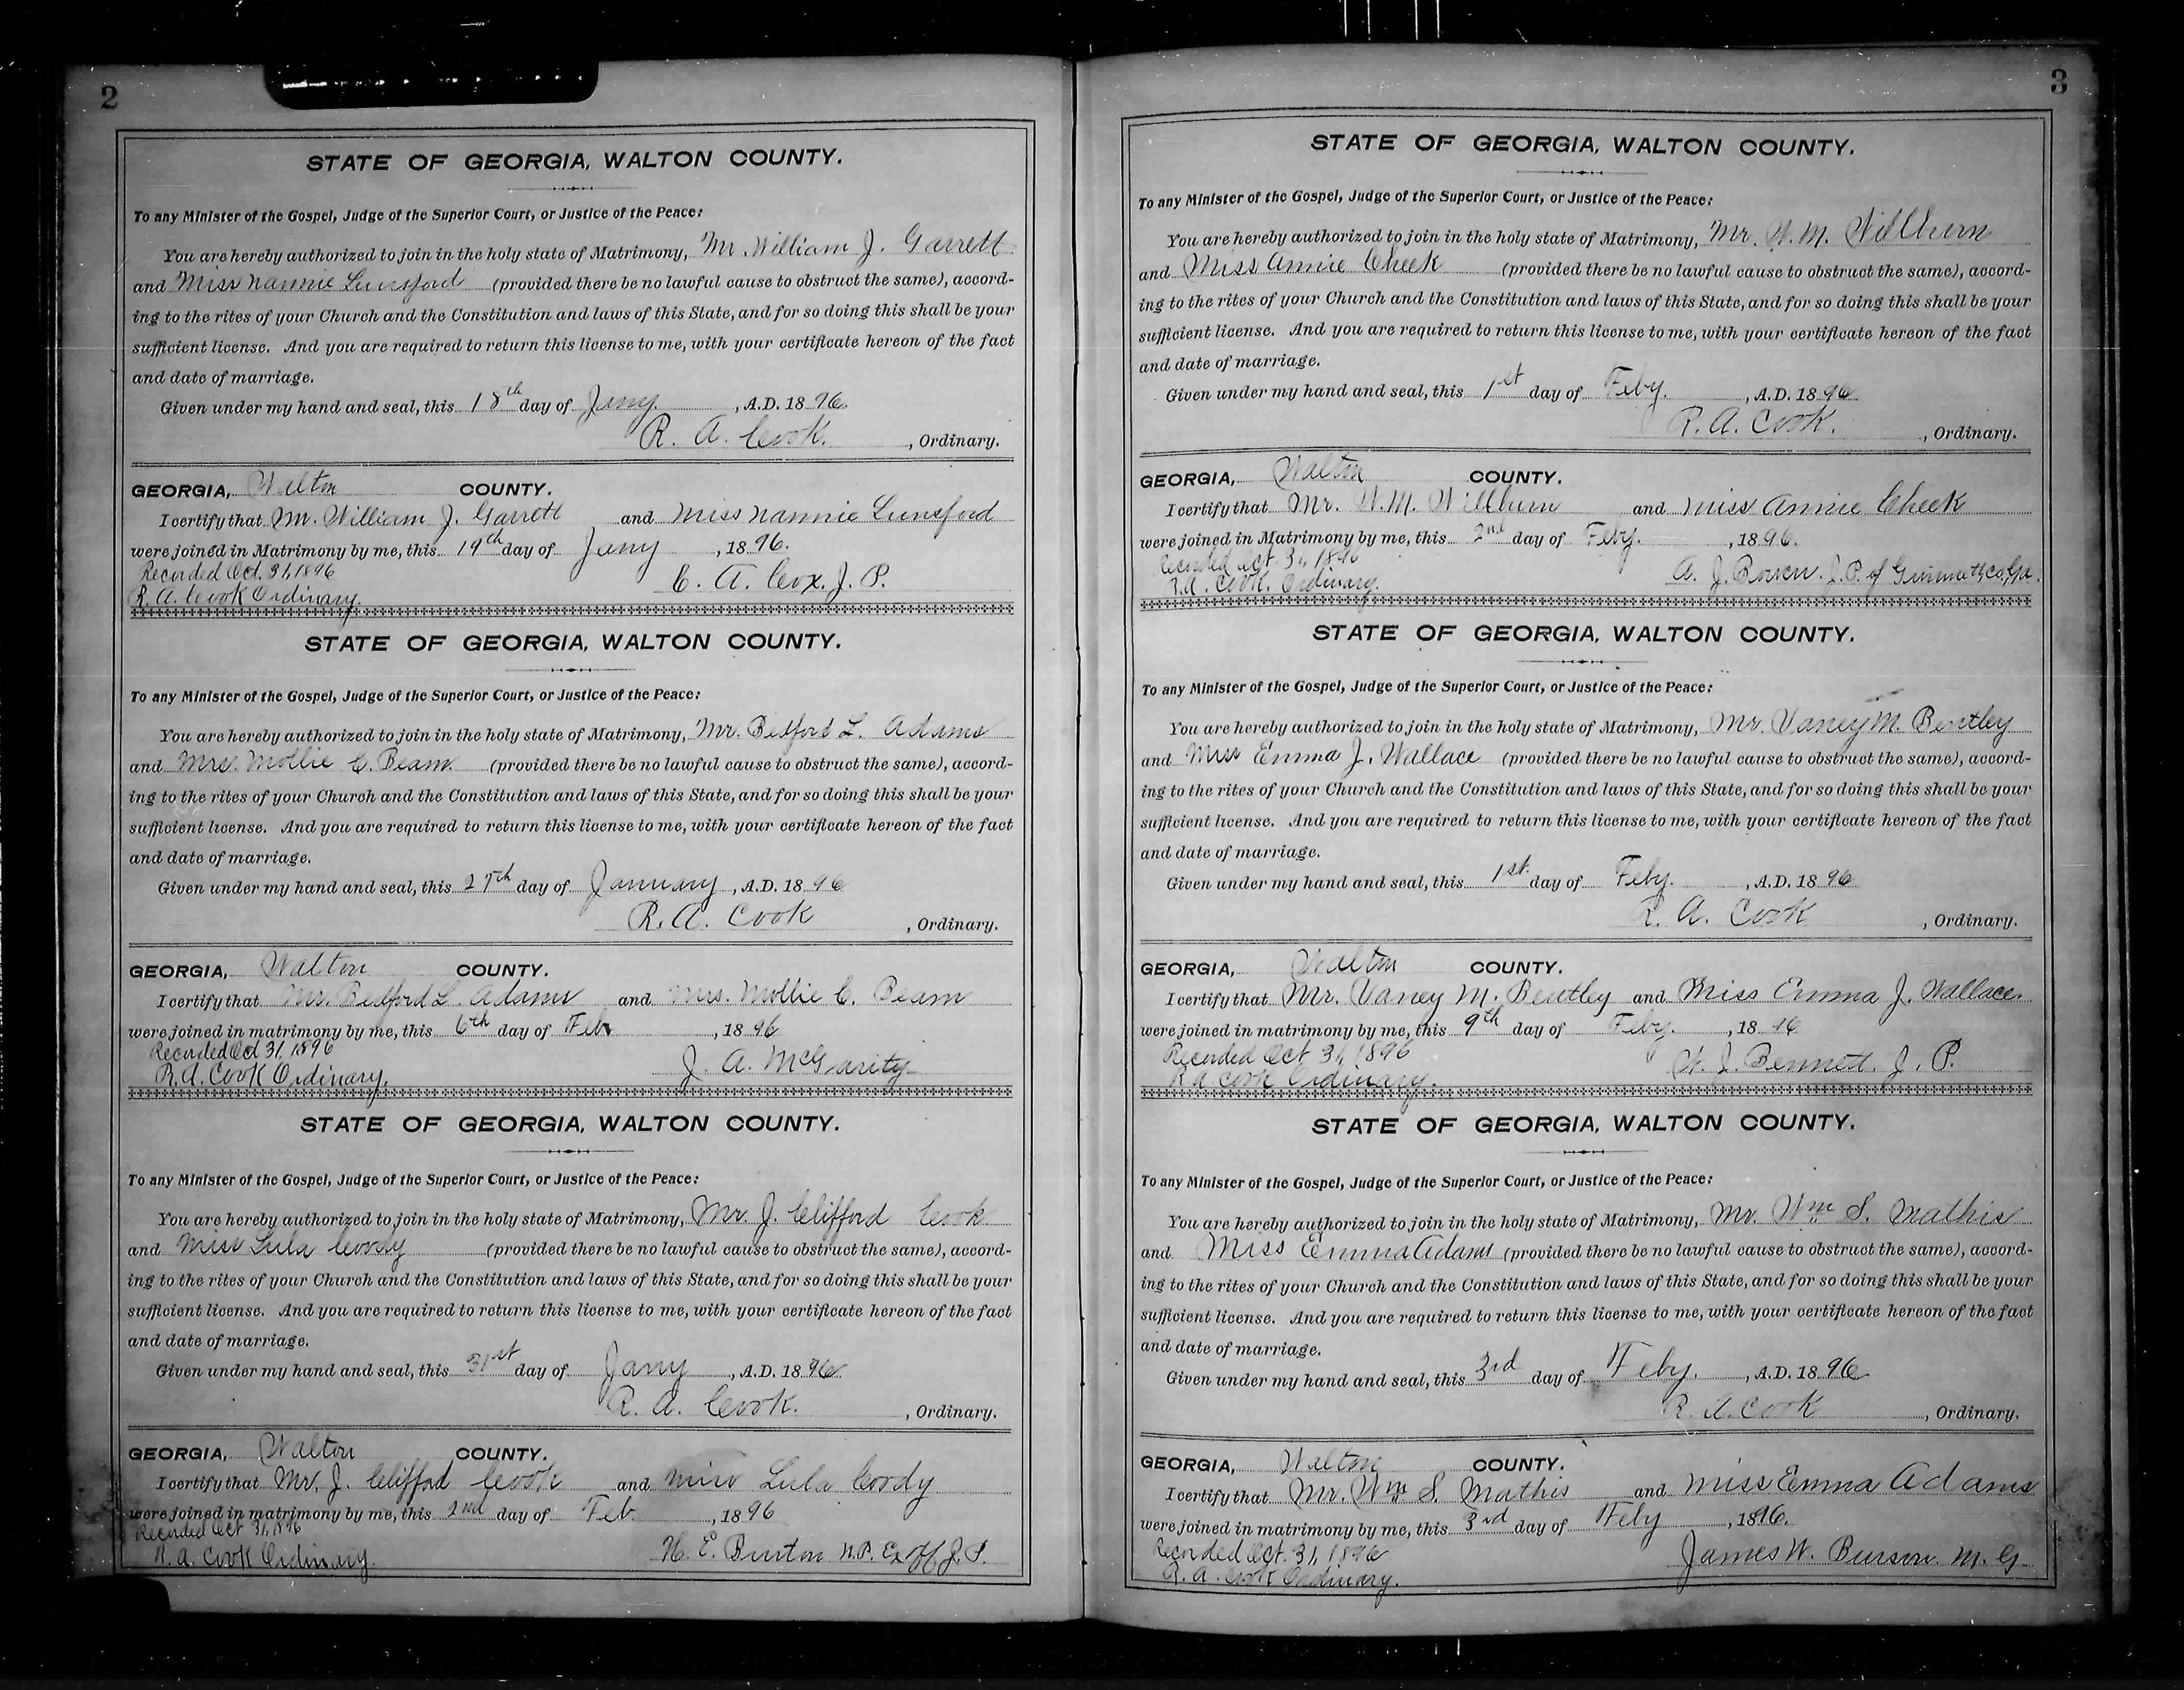 2
STATE OF GEORGIA, WALTON COUNTY.
To any Minister of the Gospel, Judge of the Superior Court, or Justice of the Peace:
You are hereby authorized to join in the holy state of Matrimony, Mr. William J. Garrett
and Miss Nannie Lunsford (provided there be no lawful cause to obstruct the same), accord-
ing to the rites of your Church and the Constitution and laws of this State, and for so doing this shall be your
sufficient license. And you are required to return this license to me, with your certificate hereon of the fact
and date of marriage.
Given under my hand and seal, this 18th day of Jany. , A.D. 1896.
R. A. Cook. , Ordinary.
GEORGIA, Walton COUNTY.
I certify that Mr. William J. Garrett and Miss Nannie Lunsford
were joined in Matrimony by me, this 19th day of Jany , 1896.
Recorded Oct. 31, 1896
C. A. Cox. J. P.
R. A. Cook Ordinary.
STATE OF GEORGIA, WALTON COUNTY.
To any Minister of the Gospel, Judge of the Superior Court, or Justice of the Peace:
You are hereby authorized to join in the holy state of Matrimony, Mr. Bedford L. Adams
and Mrs. Mollie C. Beam. (provided there be no lawful cause to obstruct the same), accord-
ing to the rites of your Church and the Constitution and laws of this State, and for so doing this shall be your
sufficient license. And you are required to return this license to me, with your certificate hereon of the fact
and date of marriage.
Given under my hand and seal, this 27th day of January , A.D. 1896
R. A. Cook , Ordinary.
GEORGIA, Walton COUNTY.
I certify that Mr. Bedford L. Adams and Mrs. Mollie C. Beam
were joined in matrimony by me, this 6th day of Feb , 1896
Recorded Oct 31, 1896
J. A. McGarity
R. A. Cook Ordinary.
STATE OF GEORGIA, WALTON COUNTY.
To any Minister of the Gospel, Judge of the Superior Court, or Justice of the Peace:
You are hereby authorized to join in the holy state of Matrimony, Mr. J. Clifford Cook
and Miss Lula Coody (provided there be no lawful cause to obstruct the same), accord-
ing to the rites of your Church and the Constitution and laws of this State, and for so doing this shall be your
sufficient license. And you are required to return this license to me, with your certificate hereon of the fact
and date of marriage.
Given under my hand and seal, this 31st day of Jany , A.D. 1896
R. A. Cook. , Ordinary.
GEORGIA, Walton COUNTY.
I certify that Mr. J. Clifford Cook and Miss Lula Coody
were joined in matrimony by me, this 2nd day of Feb. , 1896
Recorded Oct 31, 1896
R. A. Cook Ordinary.
H. E. Burton N.P. Ex Off J. P.
3
STATE OF GEORGIA, WALTON COUNTY.
To any Minister of the Gospel, Judge of the Superior Court, or Justice of the Peace:
You are hereby authorized to join in the holy state of Matrimony, Mr. W. M. Willburn
and Miss Annie Cheek (provided there be no lawful cause to obstruct the same), accord-
ing to the rites of your Church and the Constitution and laws of this State, and for so doing this shall be your
sufficient license. And you are required to return this license to me, with your certificate hereon of the fact
and date of marriage.
Given under my hand and seal, this 1st day of Feby. , A.D. 1896
R. A. Cook. , Ordinary.
GEORGIA, Walton COUNTY.
I certify that Mr. W. M. Willburn and Miss Annie Cheek
were joined in Matrimony by me, this 2nd day of Feby. , 1896.
Recorded Oct. 31, 1896
A. J. Bowen. J. P. of Gwinnett, Co, Ga.
R. A. Cook. Ordinary.
STATE OF GEORGIA, WALTON COUNTY.
To any Minister of the Gospel, Judge of the Superior Court, or Justice of the Peace:
You are hereby authorized to join in the holy state of Matrimony, Mr. Vaney M. Bentley
and Miss Emma J. Wallace (provided there be no lawful cause to obstruct the same), accord-
ing to the rites of your Church and the Constitution and laws of this State, and for so doing this shall be your
sufficient license. And you are required to return this license to me, with your certificate hereon of the fact
and date of marriage.
Given under my hand and seal, this 1st. day of Feby. , A.D. 1896
R. A. Cook , Ordinary.
GEORGIA, Walton COUNTY.
I certify that Mr. Vaney M. Bentley and Miss Emma J. Wallace.
were joined in matrimony by me, this 9th day of Feby. , 1896
Recorded Oct 31, 1896
W. J. Bennett. J. P.
R A Cook Ordinary.
STATE OF GEORGIA, WALTON COUNTY.
To any Minister of the Gospel, Judge of the Superior Court, or Justice of the Peace:
You are hereby authorized to join in the holy state of Matrimony, Mr. Wm S. Mathis
and Miss Emma Adams (provided there be no lawful cause to obstruct the same), accord-
ing to the rites of your Church and the Constitution and laws of this State, and for so doing this shall be your
sufficient license. And you are required to return this license to me, with your certificate hereon of the fact
and date of marriage.
Given under my hand and seal, this 3rd day of Feby. , A.D. 1896
R. A. Cook , Ordinary.
GEORGIA, Walton COUNTY.
I certify that Mr. Wm S. Mathis and Miss Emma Adams
were joined in matrimony by me, this 3rd day of Feby , 1896.
Recorded Oct. 31, 1896
James W. Burson. M. G
R. A. Cook Ordinary.